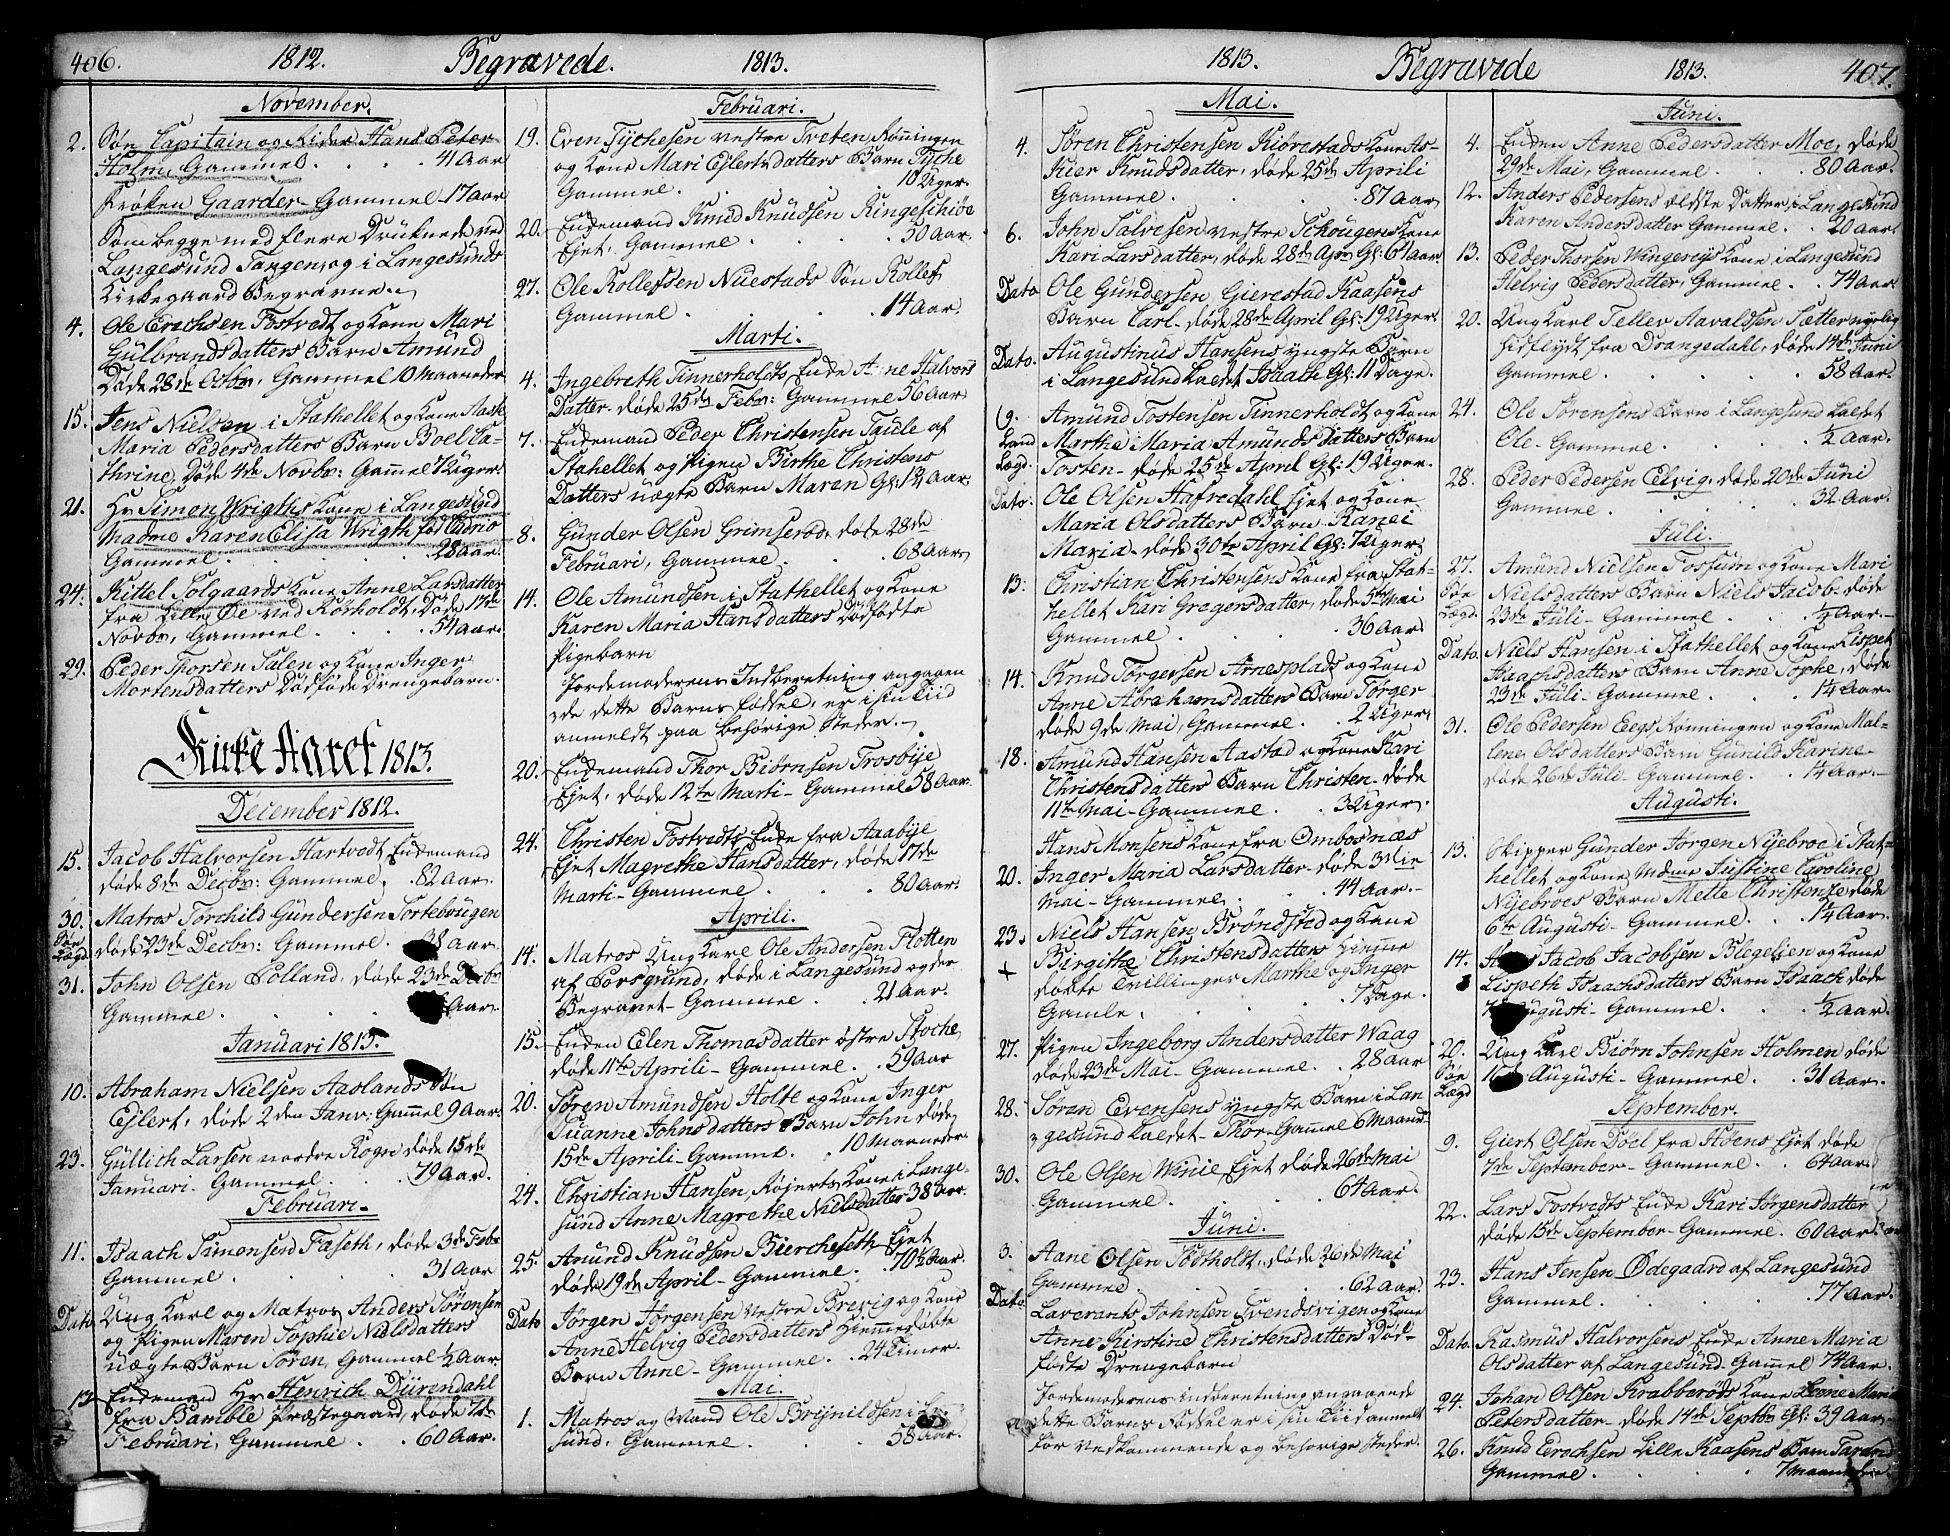 406. 1812. Begravede. 1813.
November.
2. Søn Capitain og Rider Hans Peter
Holm, Gammel . . 41 Aar
Frøken Gaarder - Gammel 17 Aar
Som begge med flere Druknede ved
Langesund Tangen, og i Langesunds
Kirkegaard Begravne
4. Ole Erichsen Fostvedt og Kone Mari
Gülbrandsdatters Barn Amünd
Døde 28de Octbr, Gammel 10 Maaneder
15. Jens Nielsen i Stathellet og Kone Aase
Maria Pedersdatters Barn Boel Ca-
thrine, Døde 4de Novbr: Gammel 7 Uger.
21. Hr Simon Wrigths Kone i Langesund
Madme Karen Elisa Wrigth, fød
Gammel . . . 28 Aar.
24. Kittel Solgaards Kone Anne Larsdatter
fra Lille Øe ved Rørholdt, Døde 17de
Novbr, Gammel . . 54 Aar.
29. Peder Thorsen Salen og Kone Inger
Mortensdatters Dødføde Drengebarn.
Kirke Aaret 1813.
December 1812.
15. Jacob Halvorsen Hartvedt, Enkemand
døde 8de Decbr: Gammel . 82 Aar.
30. Matros Torchild Gündersen Sortebougen
Søe døde 23de Decbr: Gammel . 38 Aar.
Lægd.
31. John Olsen Polland, døde 23de Decbr
Gammel . . . Aar.
Januari 1813.
10. Abraham Nielsen Aaslands Søn
Ejlert, døde 2den Janr: Gammel 9 Aar.
23. Güllich Larsen nordre Rogn døde 15de
Januari - Gammel . . 79 Aar.
Februari.
11. Isaach Simonsen Faseth, døde 3de Febr
Gammel . . . 31 Aar
Dato Ung Karl og Matros Anders Sørensen
og Pigen Maren Sophie Nielsdatters
uægte Barn Søren, Gammel ½ Aar
Enkemand Hr Henrich Dürendahl
fra Bamble Præstegaard, døde 7de
Februari, Gammel . . 60 Aar.
Februari.
19. Even Tychesen vestre Tveten, Rønningen
og Kone Mari Ejlertsdatters Barn Tyche
Gammel . . . 10 Uger.
20. Enkemand Knud Knudsen Ringeschiøe
Ejet, Gammel . . . 50 Aar.
27. Ole Rollefsen Nüestads Søn Rollef
Gammel . . . 14 Aar.
Marti.
4. Ingebreth Tinnerholdts Enke Anne Halvors
Datter - døde 25de Febr: Gammel 56 Aar
7. Enkemand Peder Christensen Taule af
Stahellet og Pigen Birthe Christens
Datters uægte Barn Maren Gl: 1¼ Aar.
8. Günder Olsen Grimserød, døde 28de
Februari, Gammel . . 68 Aar
14. Ole Amundsen i Stathellet og Kone
Karen Maria Hansdatters Dødfødte
Pigebarn
Jordemoderens Indberetning angaaen
de dette Barns Fødsel, er i sin Tiid
anmeldt paa behørige Steder.
20. Enkemand Thor Biørnsen Trosbÿe
Ejet, døde 12te Marti - Gammel 58 Aar.
24. Christen Fostvedts Enke fra Aabÿe
Ejet Magrethe Hansdatter, døde 17de
Marti - Gammel . . 80 Aar.
Aprili.
14. Matros Ung Karl Ole Andersen Flotten
af Porsgrund, døde i Langesund og der
Begravet - Gammel . . 21 Aar.
15. Enken Elen Thomasdatter østre Stoche,
døde 11te Aprili - Gammel . 59 Aar
20. Søren Amündsen Holte og Kone Inger
Suanne Johnsdatters Barn John døde
15de Aprili - Gammel . 10 Maaneder
24. Christian Hansen, Røjerts Kone i Lange-
sund Anne Magrethe Nielsdatter 38 Aar.
25. Amünd Knüdsen Biercheseth Ejet
døde 19de April - Gammel . 70½ Aar.
Dato Jørgen Jørgensen vestre Brevig og Kone
Anne Helvig Pedersdatters Hiemmedøbte
Barn Anne - Gammel . . 24 Timer.
Mai.
1. Matros og Mand Ole Brÿnildsen i
sund, Gammel . . . 58 Aar.
1813. Begravede 1813. 407.
Mai.
4. Søren Christensen Kiørestads Kone As-
kier Knudsdatter, døde 25de Aprili
Gammel . . . 87 Aar
6. John Salvesen vestre Schougers Kone
Kari Larsdatter, døde 28de Apr: Gl: 61 Aar
Dato Ole Gündersen Gierestad Kaasens
Barn Carl - døde 28de April Gl: 19 Uger.
Dato. Augustinus Hansens yngste Barn
i Langesund kaldet Isaach Gl: 11 Dage.
9. Amünd Tostensen Tinnerholdt og Kone
Land Marthe Maria Amündsdatters Barn
Lægd. Tosten - døde 25de April Gl: 19 Uger.
Dato. Ole Olsen Hafredahl Ejet og Kone
Maria Olsdatters Barn Ranei
Maria - døde 30te April Gl: 7 Uger
13. Christian Christensens Kone fra Stat-
hellet Kari Gregersdatter, døde 5te Mai
Gammel . . . 36 Aar
14. Knud Torgersen Arnesplads og Kone
Anne Abrahamsdatters Barn Torger
døde 9de Mai, Gammel . . 2 Uger
18. Amünd Hansen Aastad og Kone Kari
Christensdatters Barn Christen - døde
11te Mai - Gammel . . 3 Uger.
Hans Monsens Kone fra Ombosnæs
20. Inger Maria Larsdatter - døde 3die
Mai - Gammel . . 44 Aar.
23. Niels Hansen Brøndsnd og Kone
+ Birgithe Christensdatters hiemme
døbte Tvillinger Marthe og Inger
Gamle . . . 7 Dage.
27. Pigen Ingeborg Andersdatter Waag
døde 23de Mai - Gammel . . 28 Aar
28. Søren Evensens yngste Barn i Lan
gesund kaldet - Thor - Gammel 6 Maand
30. Ole Olsen Winie, Ejet døde 26de Mai
Gammel . . . 64 Aar.
Juni.
3. Aane Olsen Tvedtholdt, døde 26de Mai
Gammel . . . 62 Aar.
Dato Laverants Johnsen Svendsvigen og Kone
Anne Kirstine Christensdatters Død-
fødte Drengebarn
Jordemoderens Indberetning angaaende
dette Barns Fødsel er i sin Tiid anmeldt
for vedkommende og behørige Steder.
Juni.
4. Enken Anne Pedersdatter Moe, døde
29de Mai, Gammel . . 80 Aar.
12. Anders Pedersens ældste Datter i Langesund
Karen Andersdatter Gammel . . 20 Aar.
13. Peder Thorsen Wingereis Kone i Langesünd
Helvig Pedersdatter, Gammel . . 74 Aar.
20. Ung Karl Tellev Aavaldsen Sætter nyelig
hidflydt fra Drangedahl, døde 14de Juni
Gammel . . . 58 Aar.
24. Ole Sørensens Barn i Langesund kaldet
Ole - Gammel . . ½ Aar.
28. Peder Pedersen Elvig, døde 20de Juni
Gammel . . . 32 Aar.
Juli.
27. Amünd Nielsen Fossum og Kone Mari
Søe Nielsdatters Barn Niels Jacob - døde
Lægd. 23de Juli - Gammel . . ½ Aar.
Dato. Niels Hansen i Stathellet og Kone Lispet
Isaachsdatters Barn Anne Sophe, døde
23de Juli - Gammel . . 1¼ Aar.
31. Ole Pedersen Eegs, Rønningen og Kone Mal-
lene Olsdatters Barn Gunild Karine
døde 26de Juli - Gammel . . 1¼ Aar.
Augusti.
13. Skipper Günder Jørgen Nijebroe i Stat-
hellet og Kone Mdme Justine Caroline
Nijebroes Barn Mette Christenze døde
6te Augusti - Gammel . . 1¼ Aar.
14. Jacob Jacobsen Blegelien og Kone
Lispeth Isaachsdatters Barn Isaach døde
7 Augusti - Gammel . . ½ Aar.
20. Ung Karl Biørn Johnsen Holmen døde
Søe 16de Augusti - Gammel . . 31 Aar.
Lægd
September.
9. Giert Olsen Doel fra Høens Ejet døde
7de September - Gammel . . 64 Aar.
22. Lars Fostvedts Enke Kari Jørgensdatter
døde 15de September - Gammel . 60 Aar.
23. Hans Jensen Ødegadrd af Langesund
Gammel . . . 77 Aar.
Dato. Rasmus Halvorsens Enke Anne Maria
Olsdatter af Langesünd - Gammel 74 Aar.
24. Johan Olsen Krabberøds Kone Leene Maria
Petersdatter - døde 14de Septbr Gl: 39 Aar.
26. Knud Erochsen Lille Kaasens Barn
Gammel . . . 7 Maaneder